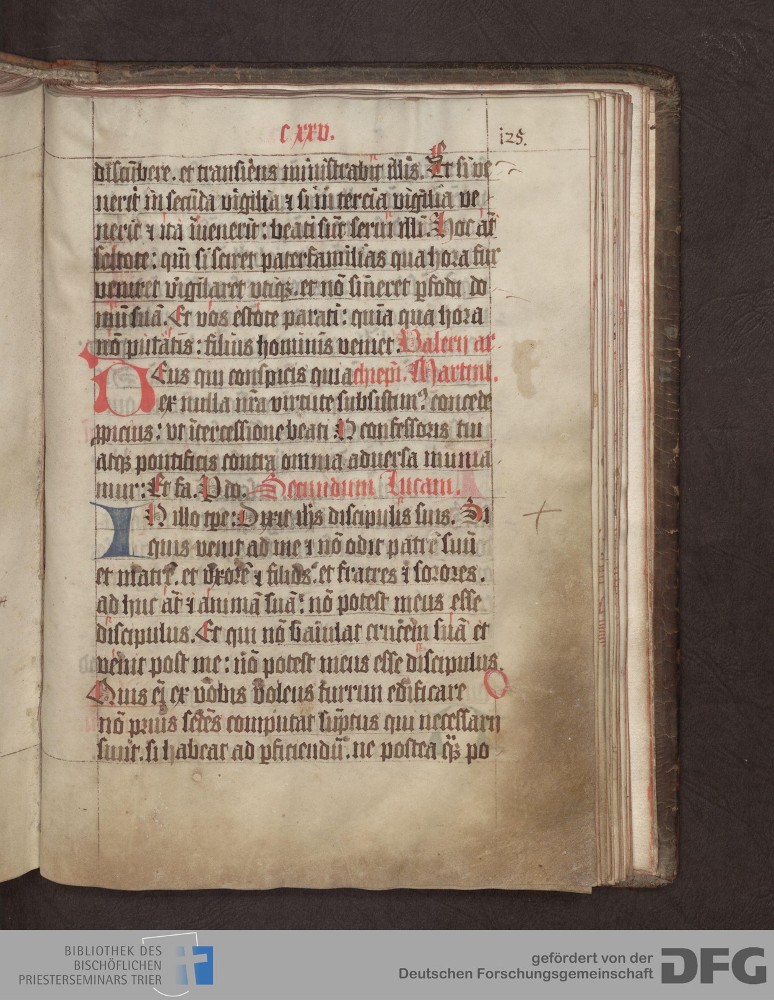 c xxv.
125.
discūbere. et transiēns ministrabit illis. Et si ve
nerit in secūda vigilia ⁊ si in tercia vigilia ve
nerit ⁊ ita īvenerit: beati sūt servi illi. Hoc āt
scitote: qm̄ si sciret paterfamilias qua hora fur
veniret vigilaret vtiqꝫ. et nō sineret ꝑfodi do
mū suā. Et vos estote parati: quia qua hora
nō putatis: filius hominis veniet. Valerii ar
Deus qui conspicis quia chiepi. Martini.
ex nulla nr̄a virtute subsistimꝰ concede
ꝓpicius: vt ītercessione beati N confessoris tui
atqꝫ pontificis contra omnia adversa munia
mur: Et fa. P do. Secundum Lucam.
IN illo tꝑe: Dixit ihs discipulis suis. Si
quis venit ad me ⁊ nō odit patrē suū
et matrē. et vxorē ⁊ filios. et fratres ⁊ sorores.
ad huc āt ⁊ animā suā: nō potest meus esse
discipulus. Et qui nō baiulat crucem suā et
venit post me: nō potest meus esse discipulus.
Quis em̄ ex vobis volens turrim edificare
nō prius sedēs computat sūptus qui necessarii
sunt. si habeat ad ꝑficiendū. ne postea q̄ꝫ po
BIBLIOTHEK DES
BISCHÖFLICHEN
PRIESTERSEMINARS TRIER
gefördert von der
Deutschen Forschungsgemeinschaft
DFG